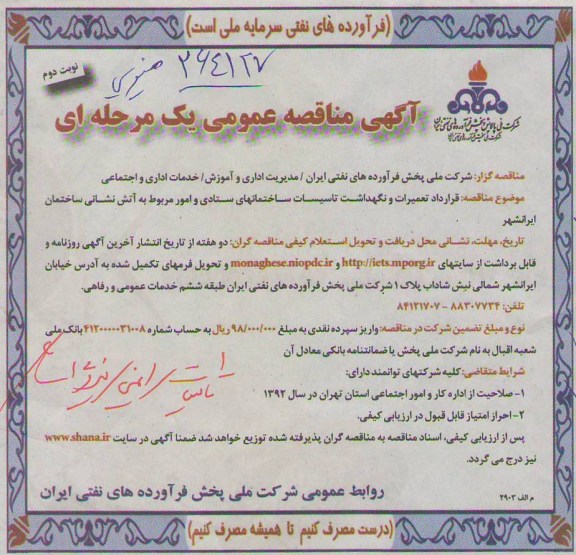 (فرآورده های نفتی سرمایه ملی است)
نوبت دوم
۲۶۴۱۲۷
شرکت ملی پالایش و پخش فرآورده های نفتی ایران
شرکت ملی پخش فرآورده های نفتی ایران
آگهی مناقصه عمومی یک مرحله ای
مناقصه گزار: شرکت ملی پخش فرآورده های نفتی ایران / مدیریت اداری و آموزش/ خدمات اداری و اجتماعی
موضوع مناقصه: قرارداد تعمیرات و نگهداشت تاسیسات ساختمانهای ستادی و امور مربوط به آتش نشانی ساختمان
ایرانشهر
تاریخ، مهلت، نشانی محل دریافت و تحویل استعلام کیفی مناقصه گران: دو هفته از تاریخ انتشار آخرین آگهی روزنامه و
قابل برداشت از سایتهای http://iets.mporg.ir و monaghese.niopdc.ir و تحویل فرمهای تکمیل شده به آدرس خیابان
ایرانشهر شمالی نبش شاداب پلاک ۱ شرکت ملی پخش فرآورده های نفتی ایران طبقه ششم خدمات عمومی و رفاهی.
تلفن: ۸۸۳۰۷۷۳۴ - ۸۴۱۲۱۷۰۷
نوع و مبلغ تضمین شرکت در مناقصه: واریز سپرده نقدی به مبلغ ۹۸/۰۰۰/۰۰۰ ریال به حساب شماره ۴۱۲۰۰۰۰۰۳۱۰۰۸ بانک ملی
شعبه اقبال به نام شرکت ملی پخش یا ضمانتنامه بانکی معادل آن
شرایط متقاضی: کلیه شرکتهای توانمند دارای:
۱- صلاحیت از اداره کار و امور اجتماعی استان تهران در سال ۱۳۹۲
۲- احراز امتیاز قابل قبول در ارزیابی کیفی.
پس از ارزیابی کیفی، اسناد مناقصه به مناقصه گران پذیرفته شده توزیع خواهد شد ضمنا آگهی در سایت www.shana.ir
نیز درج می گردد.
روابط عمومی شرکت ملی پخش فرآورده های نفتی ایران
م الف ۲۹۰۳
(درست مصرف کنیم تا همیشه مصرف کنیم)